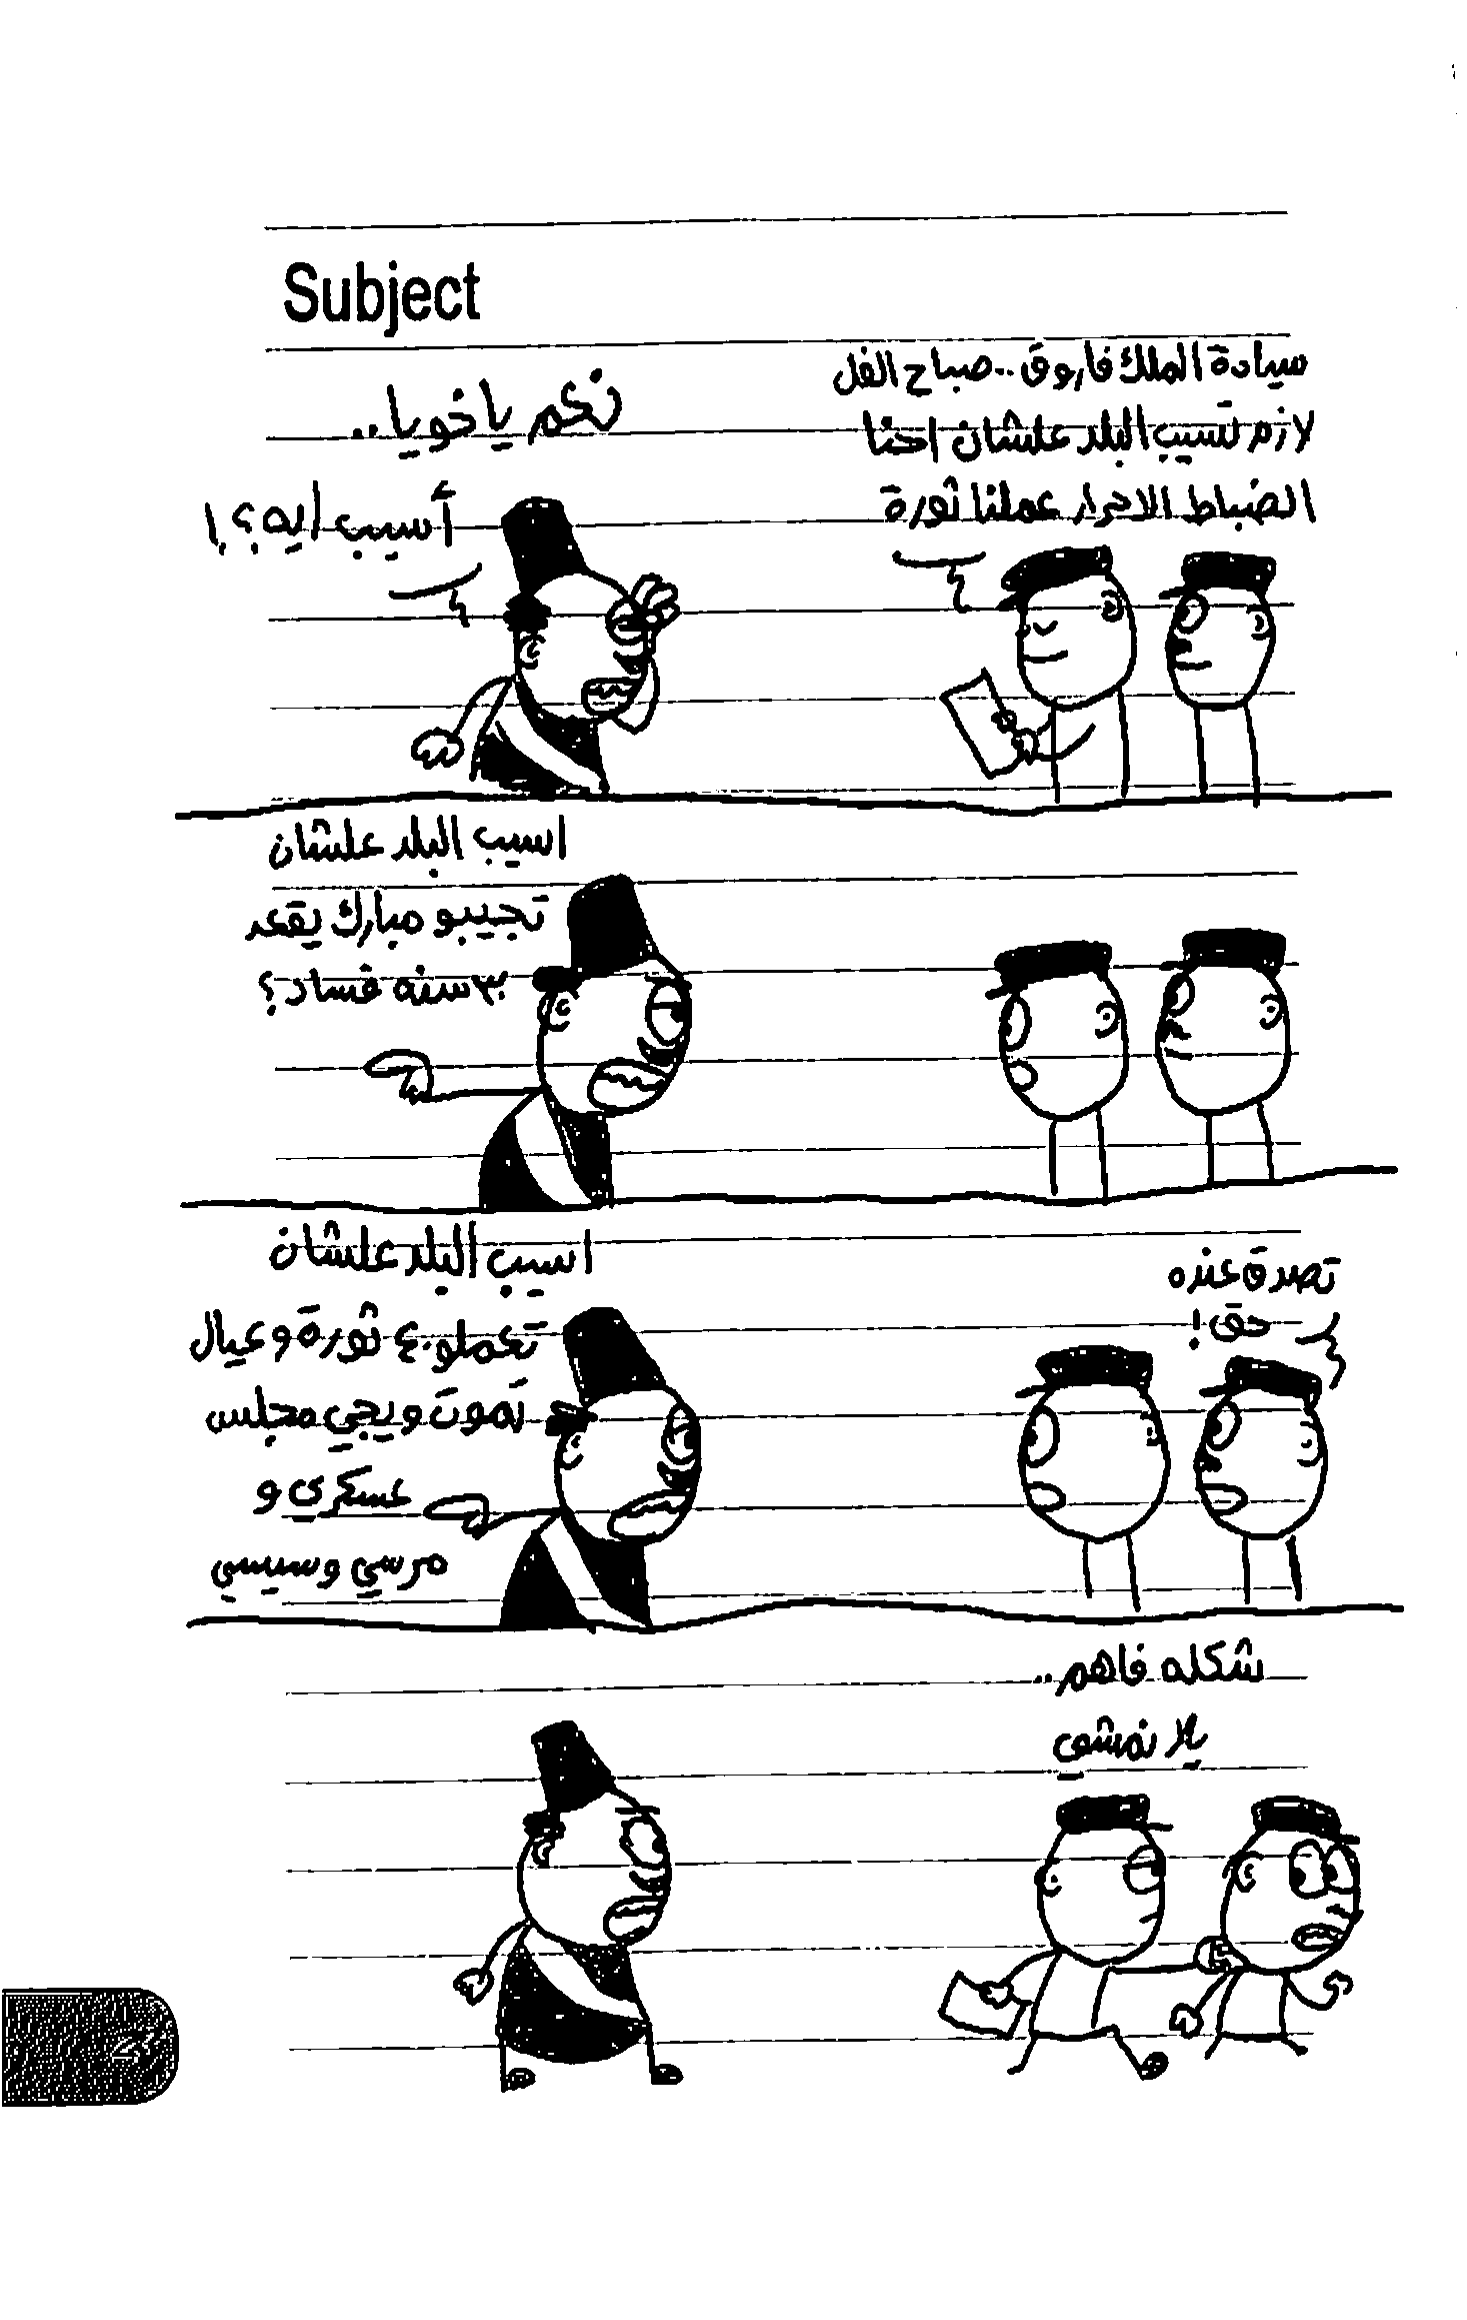 Subject
سيادة الملك فاروق .. صباح الفل
لازم تسيب البلد علشان احنا
الضباط الاحرار عملنا ثورة
نعم يا خويا ..
أسيب ايه ؟!
اسيب البلد علشان
تجيبو مبارك يقعد
٣٠ سنه فساد ؟
اسيب البلد علشان
تعملو ٤٠ ثورة و عيال
تموت و يجي مجلس
عسكري و
مرسي و سيسي
تصدق عنده
حق !
شكله فاهم ..
يلا نمشي